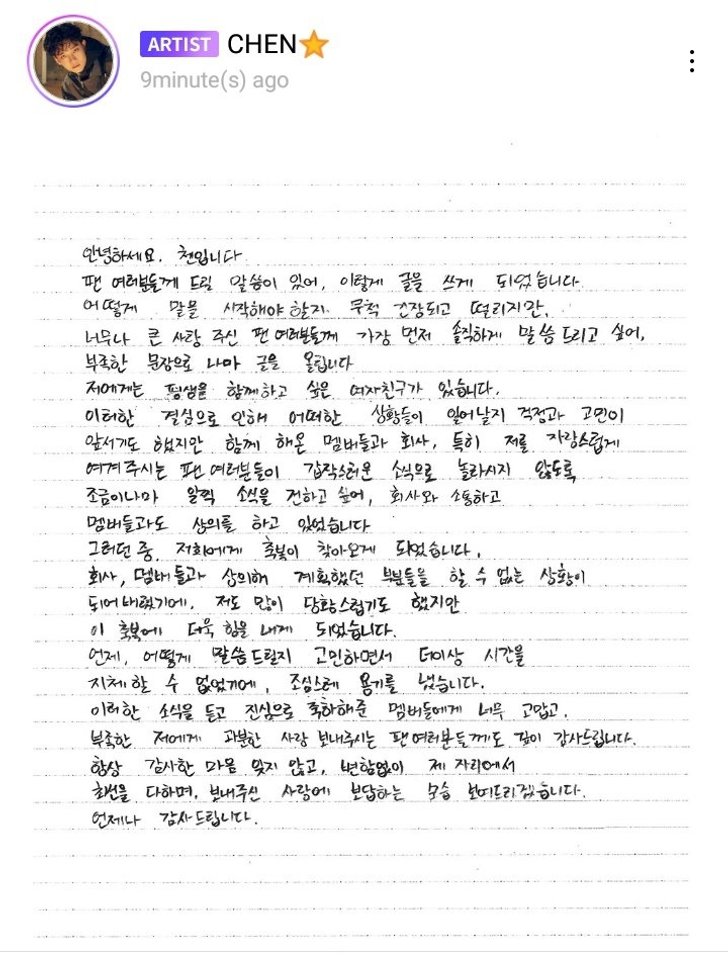 ARTIST CHEN
9minute(s) ago
안녕하세요. 첸입니다
팬 여러분들께 드릴 말씀이 있어, 이렇게 글을 쓰게 되었습니다
어떻게 말을 시작해야 할지 무척 긴장되고 떨리지만,
너무나 큰 사랑 주신 팬 여러분들께 가장 먼저 솔직하게 말씀 드리고 싶어,
부족한 문장으로 나마 글을 올립니다
저에게는 평생을 함께하고 싶은 여자친구가 있습니다.
이러한 결심으로 인해 어떠한 상황들이 일어날지 걱정과 고민이
앞서기도 했지만 함께 해온 멤버들과 회사, 특히 저를 자랑스럽게
여겨주시는 팬 여러분들이 갑작스러운 소식으로 놀라시지 않도록
조금이나마 일찍 소식을 전하고 싶어, 회사와 소통하고
멤버들과도 상의를 하고 있었습니다
그러던 중, 저희에게 축복이 찾아오게 되었습니다.
회사, 멤버들과 상의해 계획했던 부분들을 할 수 없는 상황이
되어버렸기에, 저도 많이 당황스럽기도 했지만
이 축복에 더욱 힘을 내게 되었습니다.
언제, 어떻게 말씀드릴지 고민하면서 더이상 시간을
지체 할 수 없었기에, 조심스레 용기를 냈습니다.
이러한 소식을 듣고 진심으로 축하해준 멤버들에게 너무 고맙고,
부족한 저에게 과분한 사랑 보내주시는 팬 여러분들께도 깊이 감사드립니다.
항상 감사한 마음 잊지 않고, 변함없이 제 자리에서
최선을 다하며, 보내주신 사랑에 보답하는 모습 보여드리겠습니다.
언제나 감사드립니다.